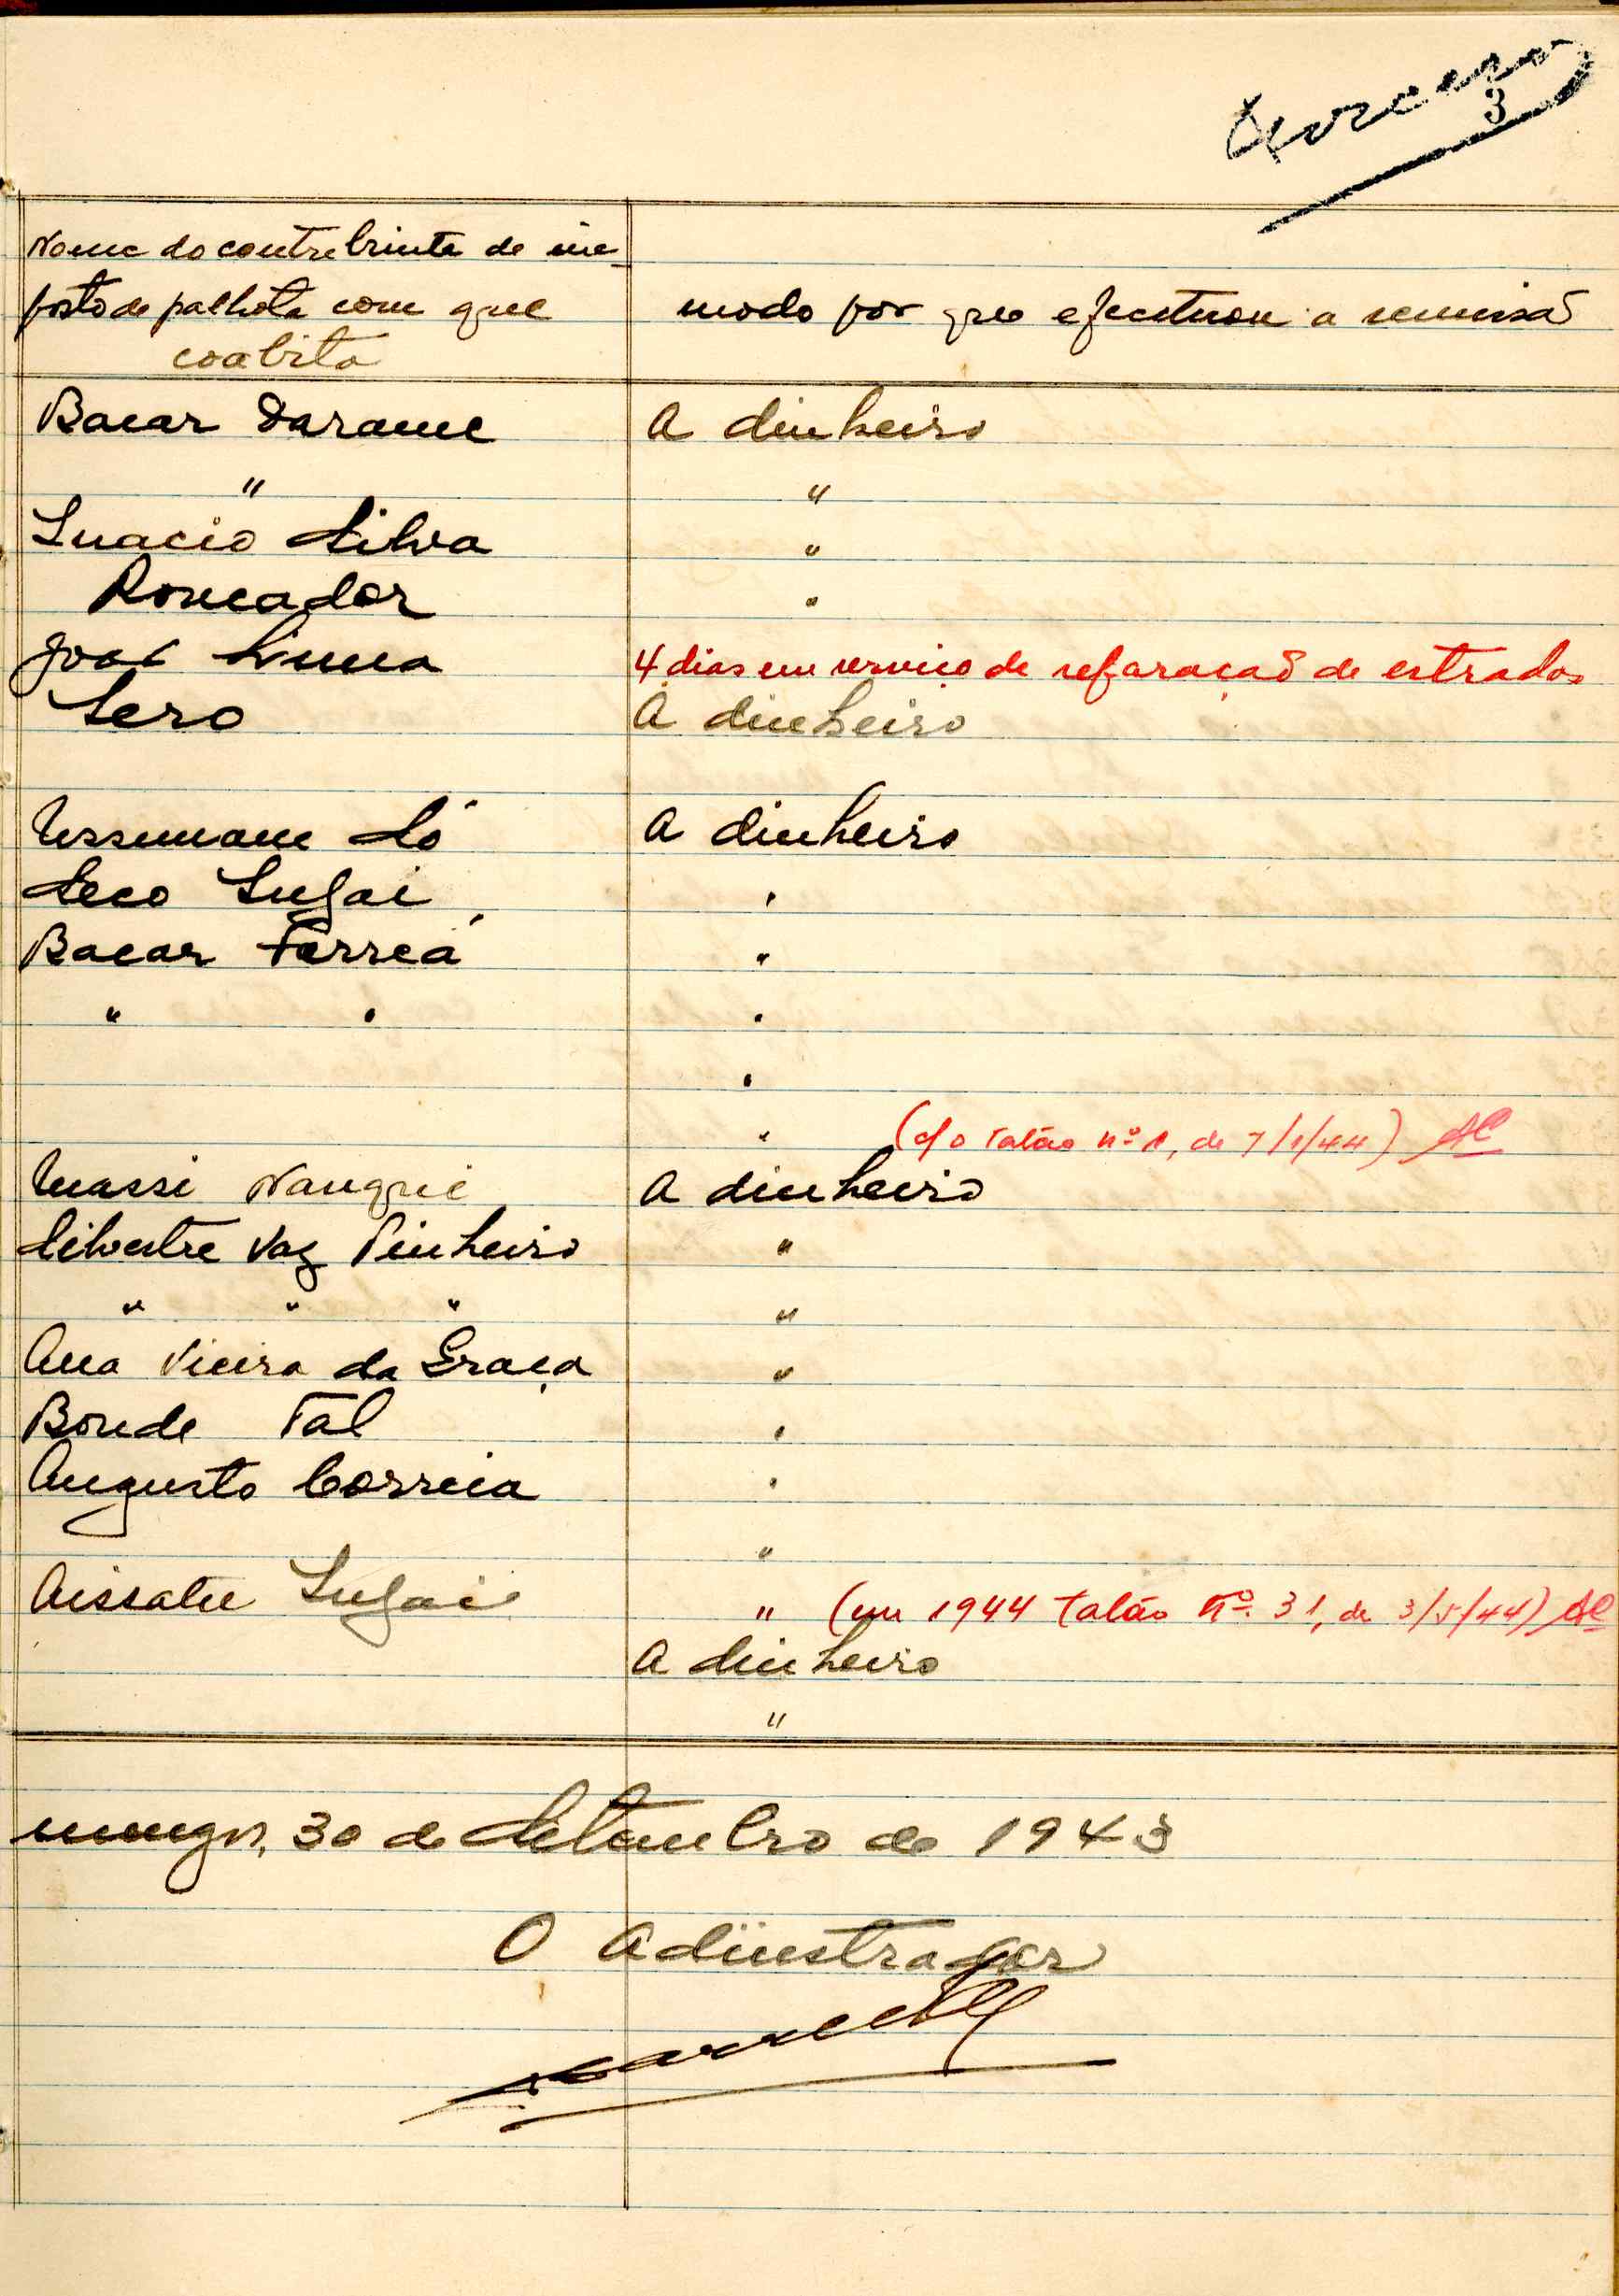 3
Nome do contrebuinte de im-
posto de palhota com que
coabita
modo por que efectuou a remissão
Bacar Darame A dinheiro
" "
Inacio Silva "
Roncador "
José 4 dias em serviço de reparação de estradas
Sero A dinheiro
Ussumane Só A dinheiro
Seco Sufai "
Bacar Torreá "
" " "
"
" (c/o talão nº 1, de 7/1/44)
Nanqué A dinheiro
Silvestre Vaz Pinheiro "
" " " "
Ana Vieira da Graça "
Bonde Fal "
Augusto Correia "
"
Aissatu Sufai " (em 1944 talão nº 31, de 3/5/44)
A dinheiro
"
30 de Setembro de 1943
O Adiinstrador